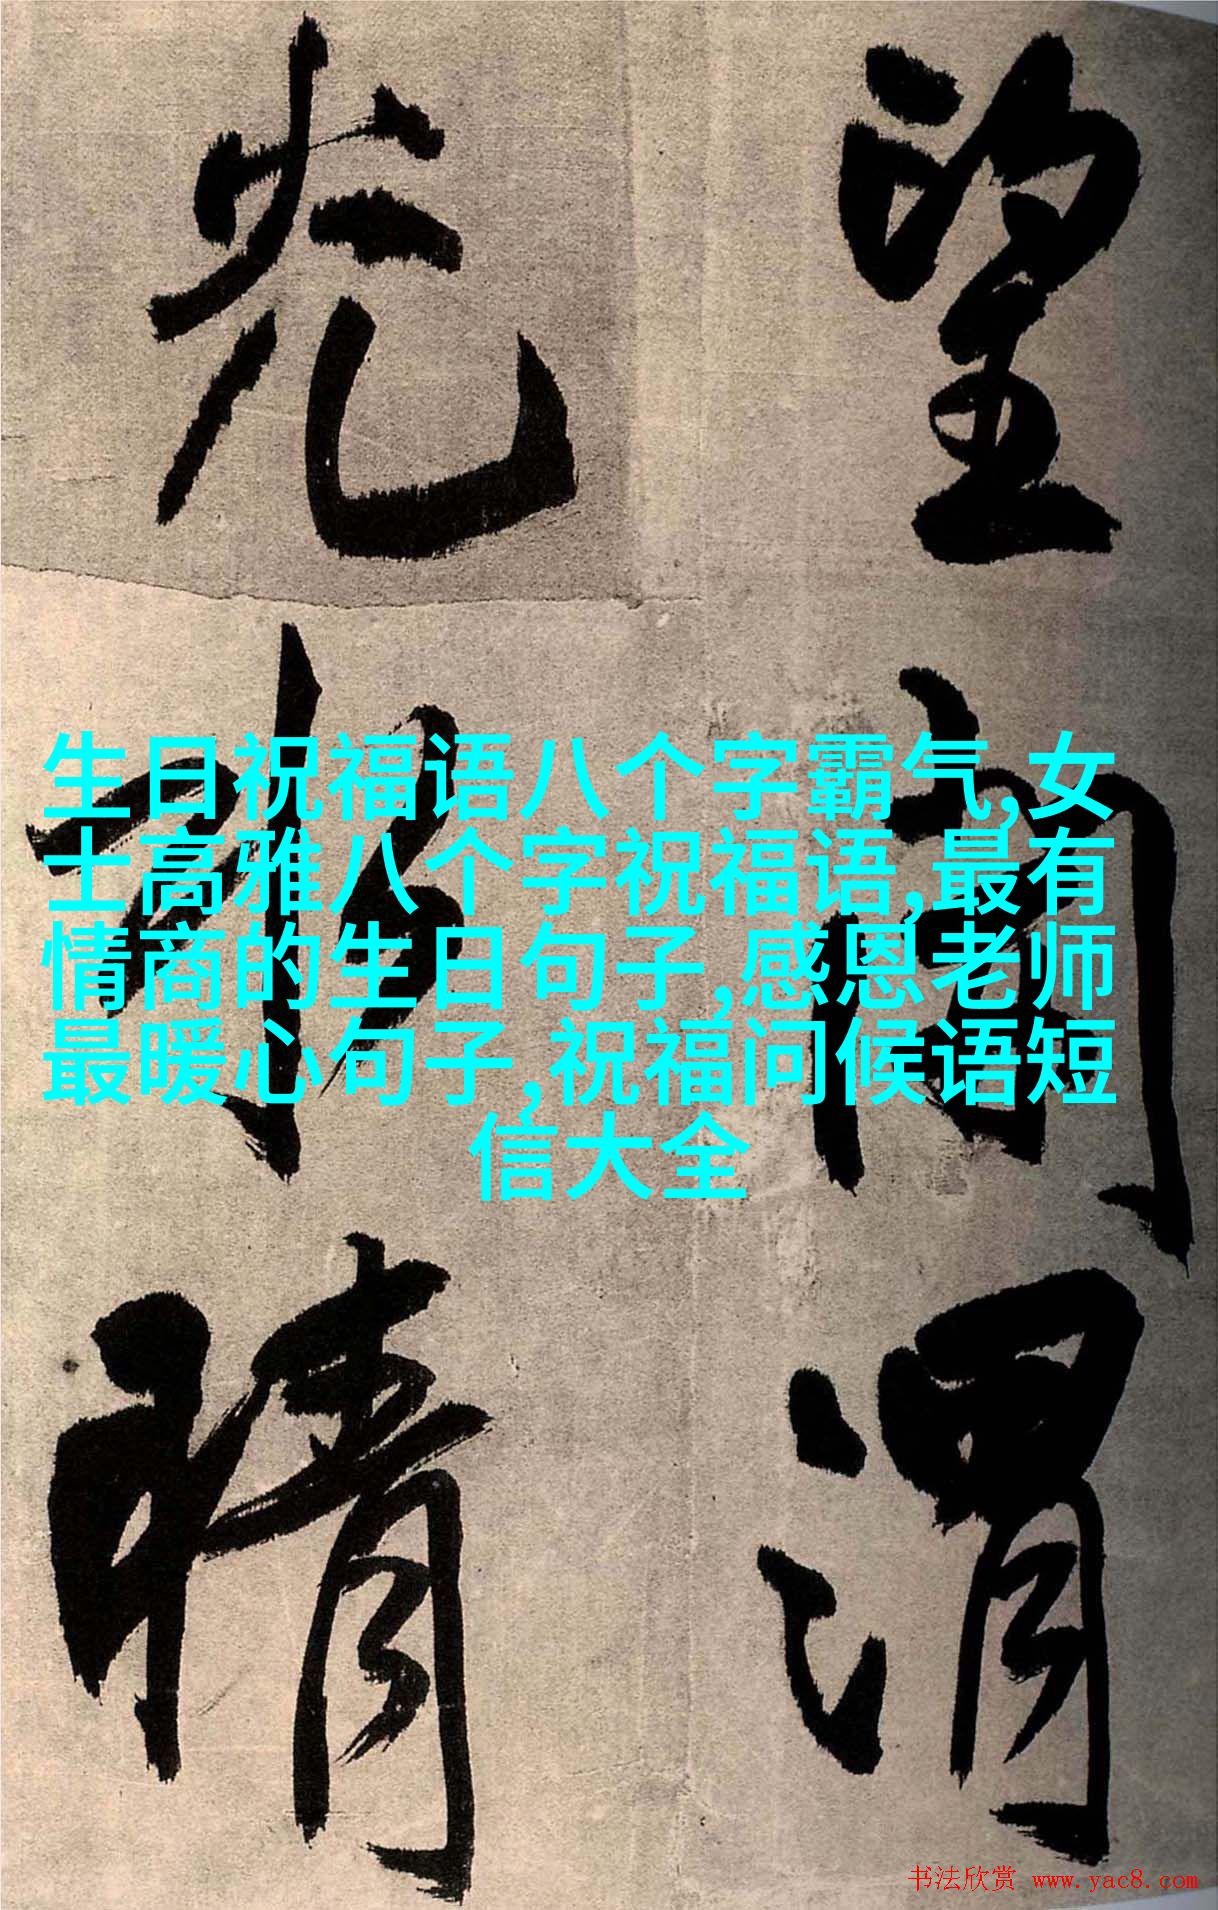 望
渭
光
晴
生日祝福语八个字霸气,女
士高雅八个字祝福语,最有
情商的生日句子,感恩老师
最暖心句子,祝福问候语短
信大全
书法欣赏 www.yac8.com